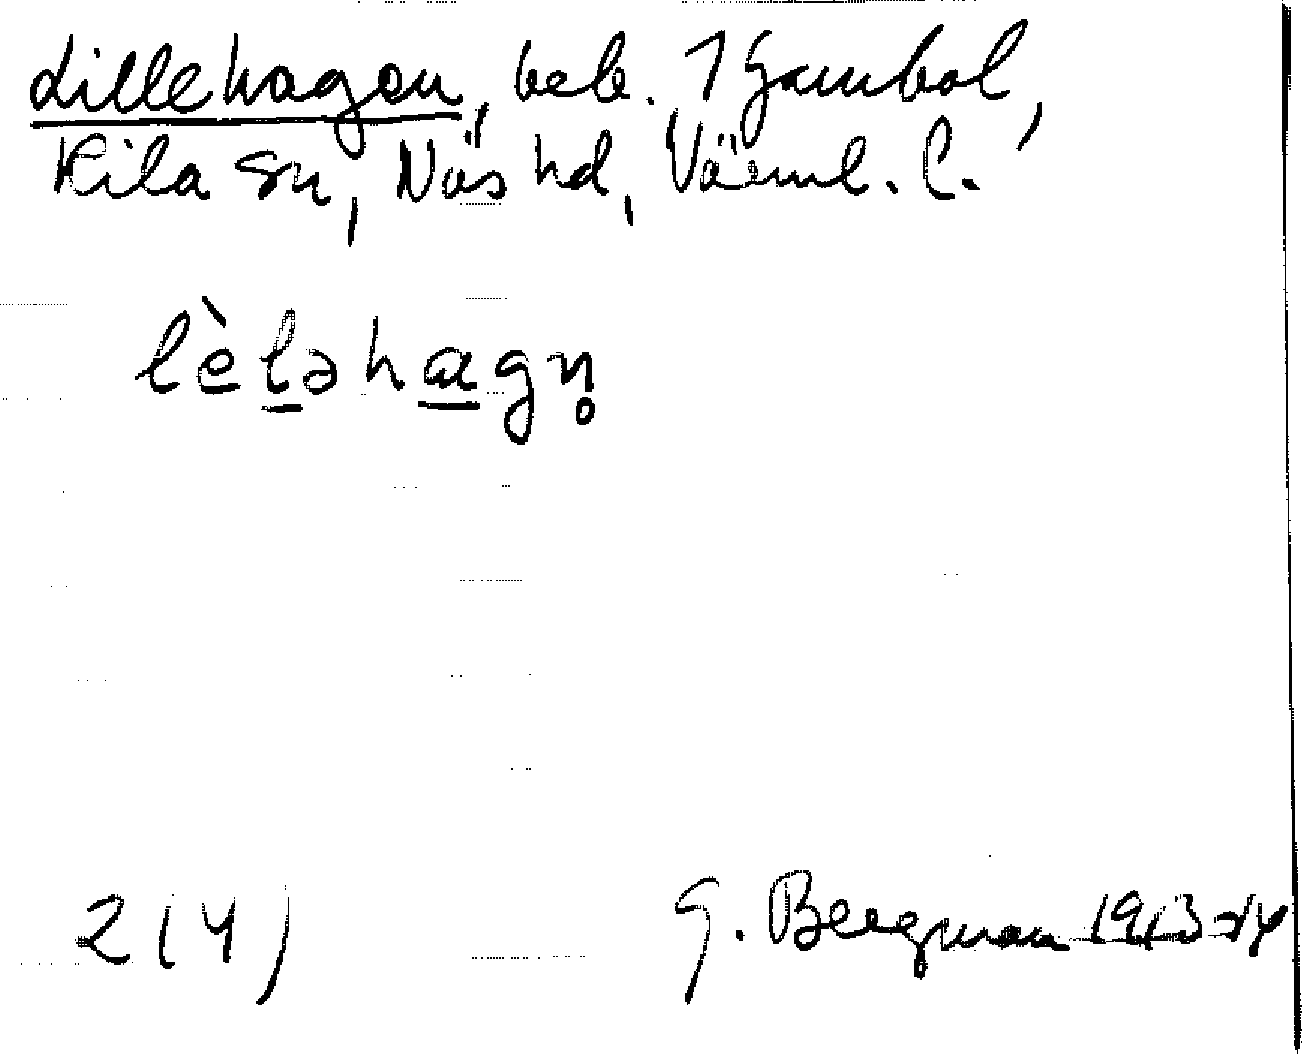 Lillehagen, beb. 1 Gambol,
Kila sn, Näs hd, Värml. l.
lèləhagn̥
2 (4)
G. Bergman 1913-14